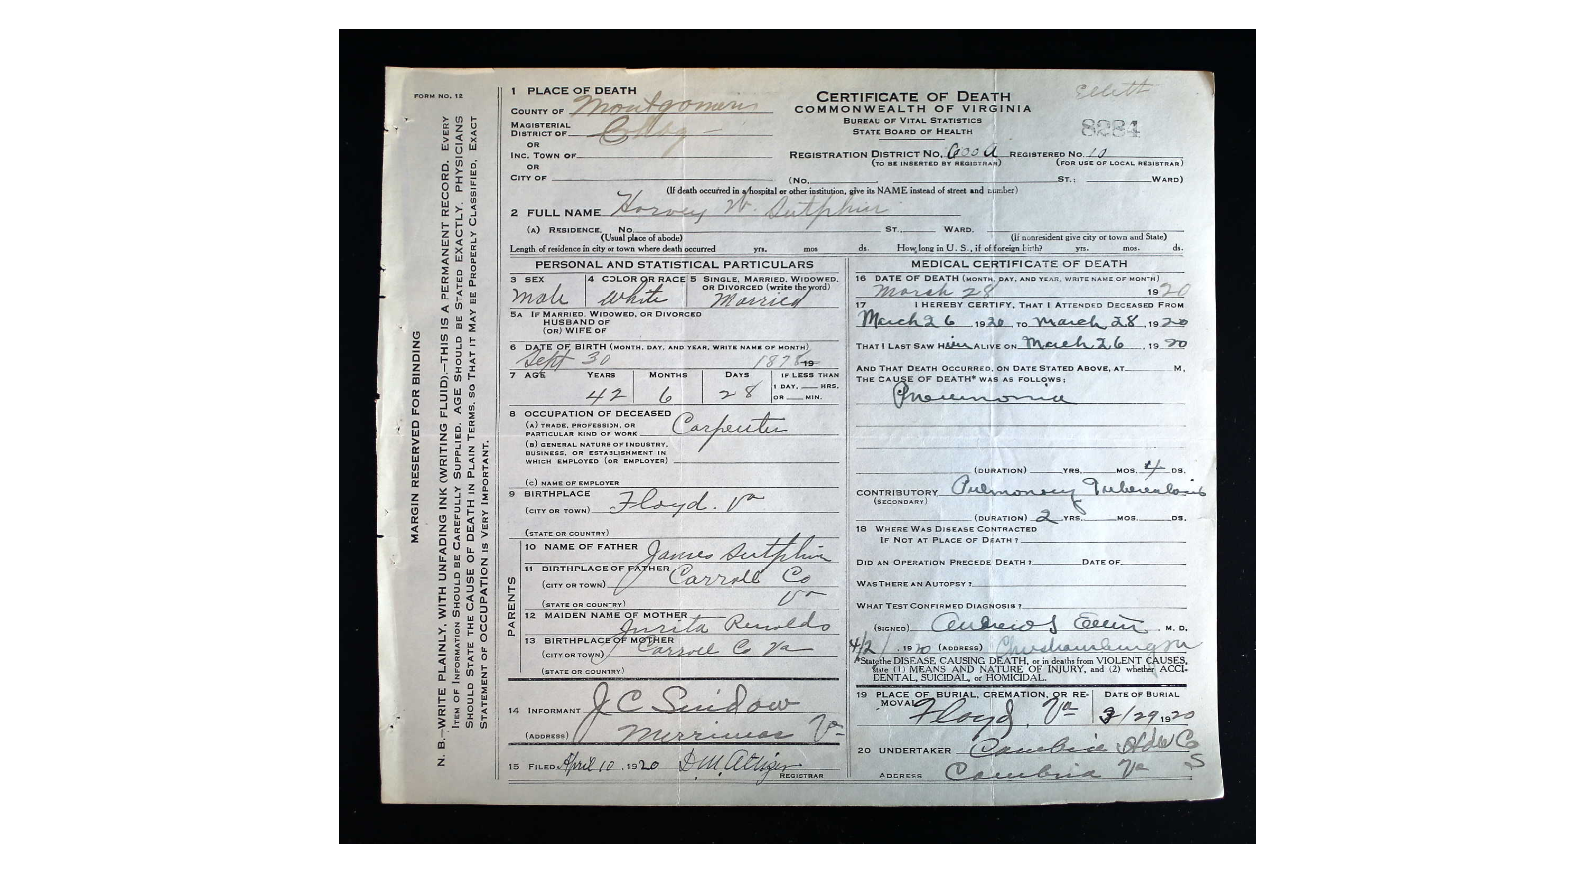 FORM NO. 12
MARGIN RESERVED FOR BINDING
N. B.—WRITE PLAINLY, WITH UNFADING INK (WRITING FLUID).—THIS IS A PERMANENT RECORD. EVERY
ITEM OF INFORMATION SHOULD BE CAREFULLY SUPPLIED. AGE SHOULD BE STATED EXACTLY. PHYSICIANS
SHOULD STATE THE CAUSE OF DEATH IN PLAIN TERMS, SO THAT IT MAY BE PROPERLY CLASSIFIED. EXACT
STATEMENT OF OCCUPATION IS VERY IMPORTANT.
1 PLACE OF DEATH
COUNTY OF Montgomery
MAGISTERIAL
DISTRICT OF
OR
INC. TOWN OF
OR
CITY OF
CERTIFICATE OF DEATH
COMMONWEALTH OF VIRGINIA
BUREAU OF VITAL STATISTICS
STATE BOARD OF HEALTH
Ellett
8284
REGISTRATION DISTRICT NO. 600 A REGISTERED NO. 10
(TO BE INSERTED BY REGISTRAR) (FOR USE OF LOCAL REGISTRAR)
(NO. ST.; WARD)
(If death occurred in a hospital or other institution, give its NAME instead of street and number)
2 FULL NAME Harvey W. Sutphin
(A) RESIDENCE. No. ST., WARD.
(Usual place of abode) (If nonresident give city or town and State)
Length of residence in city or town where death occurred yrs. mos ds. How long in U. S., if of foreign birth? yrs. mos. ds.
PERSONAL AND STATISTICAL PARTICULARS
3 SEX 4 COLOR OR RACE 5 SINGLE, MARRIED, WIDOWED, OR DIVORCED (write the word)
Male White Married
5A IF MARRIED, WIDOWED, OR DIVORCED
HUSBAND OF
(OR) WIFE OF
6 DATE OF BIRTH (MONTH, DAY, AND YEAR, WRITE NAME OF MONTH)
Sept 30 1878 19
7 AGE YEARS MONTHS DAYS IF LESS THAN
1 DAY, HRS.
OR MIN.
42 6 28
8 OCCUPATION OF DECEASED
(A) TRADE, PROFESSION, OR
PARTICULAR KIND OF WORK Carpenter
(B) GENERAL NATURE OF INDUSTRY,
BUSINESS, OR ESTABLISHMENT IN
WHICH EMPLOYED (OR EMPLOYER)
(C) NAME OF EMPLOYER
9 BIRTHPLACE
(CITY OR TOWN) Floyd. Va
(STATE OR COUNTRY)
PARENTS
10 NAME OF FATHER James Sutphin
11 BIRTHPLACE OF FATHER
(CITY OR TOWN) Carroll Co
(STATE OR COUNTRY) Va
12 MAIDEN NAME OF MOTHER
13 BIRTHPLACE OF MOTHER
(CITY OR TOWN) Carroll Co Va
(STATE OR COUNTRY)
14 INFORMANT J C
(ADDRESS) Merrimac Va
15 FILED April 10, 1920 D.M. REGISTRAR
MEDICAL CERTIFICATE OF DEATH
16 DATE OF DEATH (MONTH, DAY, AND YEAR, WRITE NAME OF MONTH)
March 28 1920
17 I HEREBY CERTIFY, THAT I ATTENDED DECEASED FROM
March 26, 1920, TO March 28, 1920
THAT I LAST SAW HIM ALIVE ON March 26, 1920
AND THAT DEATH OCCURRED, ON DATE STATED ABOVE, AT M.
THE CAUSE OF DEATH* WAS AS FOLLOWS:
Pneumonia
(DURATION) YRS. MOS. 4 DS.
CONTRIBUTORY Pulmonary Tuberculosis
(SECONDARY)
(DURATION) 2 YRS. MOS. DS.
18 WHERE WAS DISEASE CONTRACTED
IF NOT AT PLACE OF DEATH?
DID AN OPERATION PRECEDE DEATH? DATE OF
WAS THERE AN AUTOPSY?
WHAT TEST CONFIRMED DIAGNOSIS?
(SIGNED) , M. D.
4/2, 1920 (ADDRESS) Christiansburg Va
*State the DISEASE, CAUSING DEATH, or in deaths from VIOLENT CAUSES,
state (1) MEANS AND NATURE OF INJURY, and (2) whether ACCI-
DENTAL, SUICIDAL, or HOMICIDAL.
19 PLACE OF BURIAL, CREMATION, OR RE- DATE OF BURIAL
MOVAL Floyd, Va 3/29 1920
20 UNDERTAKER Cambria Hdw Co
ADDRESS Cambria Va